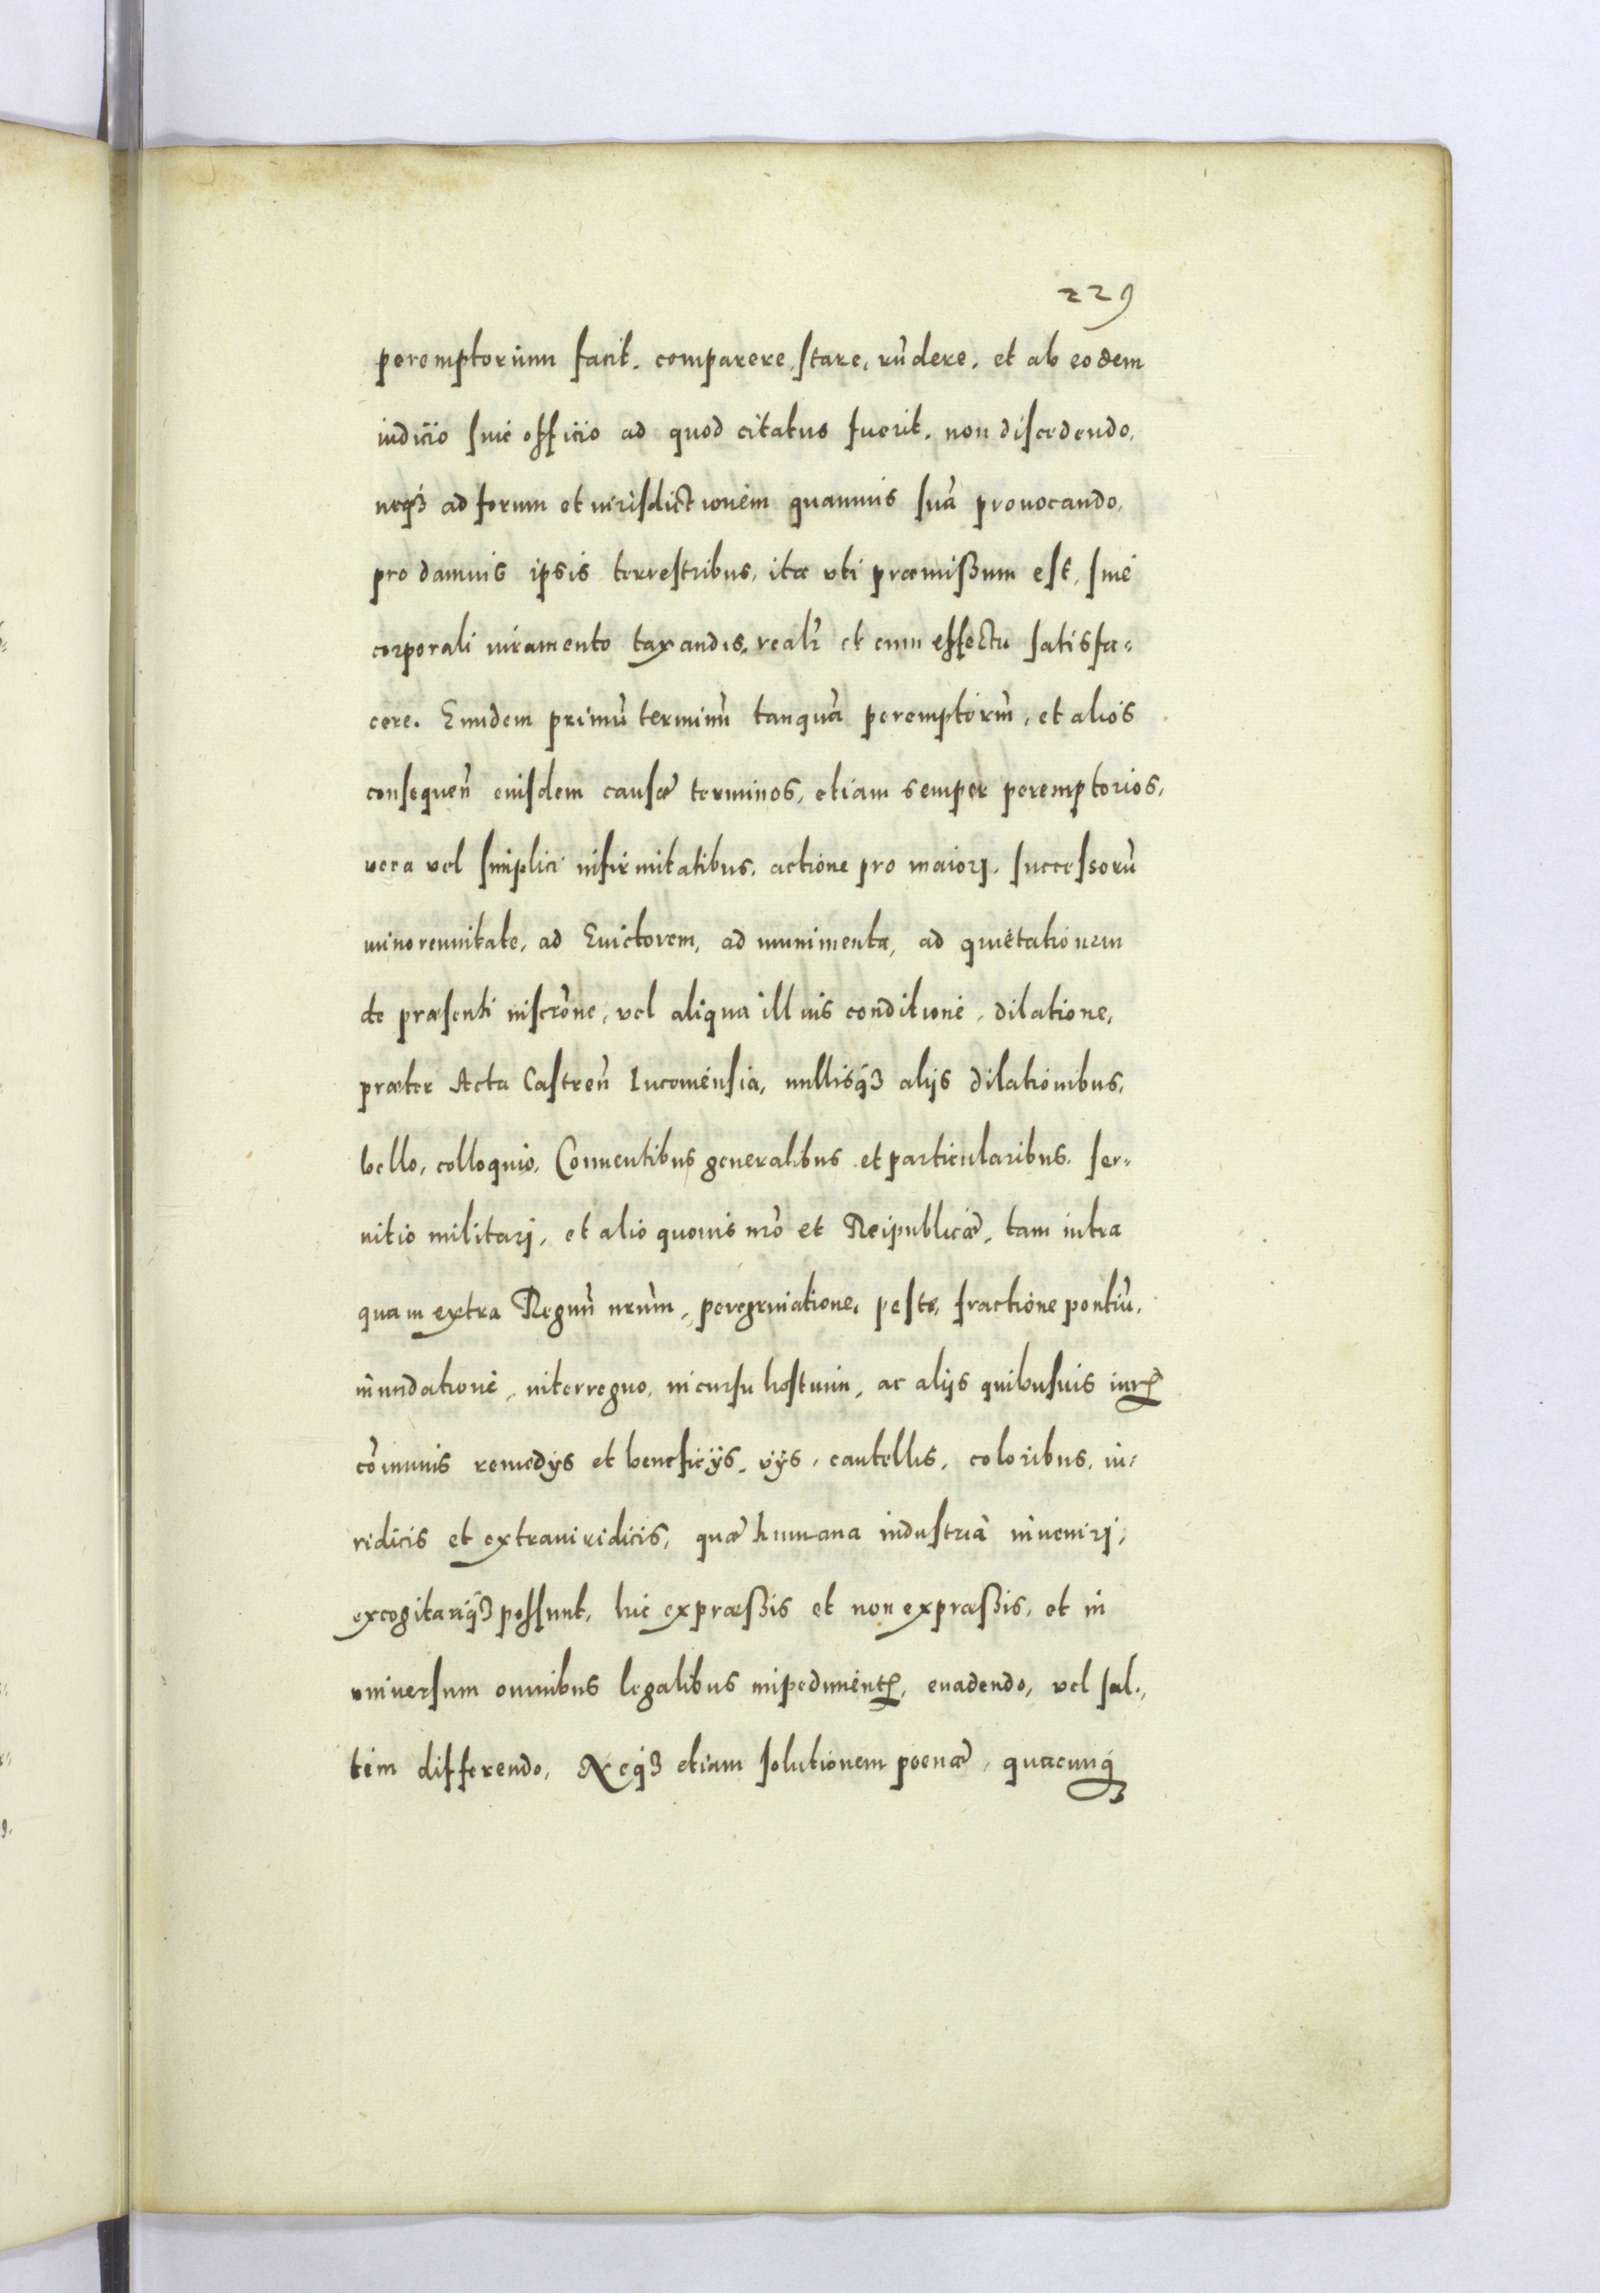 229
peremptorium facit. comparere, stare, rñdere. et ab eodem
iudicio siue officio ad quod citatus fuerit. non discedendo,
neq3 ad forum et iurisdictionem quamuis suã prouocando,
pro damnis ipsis terrestribus, ita vti præmißum est, sine
corporali iuramento taxandis. realr et cum effectu satisfa-
cere. Eundem primũ terminũ tanquã peremptoriũ, et alios
consequeñ eiusdem causæ terminos, etiam semper peremptorios,
vera vel simplici infirmitatibus. actione pro maiori. successorũ
minorennitate, ad Euictorem, ad munimenta, ad quietationem
de præsenti inscrõne, vel aliqua illius conditione, dilatione,
præter Acta Castreñ Iuconiensia, nullisq3 alijs dilationibus,
bello, colloquio, Conuentibus generalibus et particularibus. ser-
uitio militari, et alio quouis nrõ et Reipublicæ, tam intra
quam extra Regnũ nrũm, peregrinatione, peste, fractione pontiũ,
inundatione, interregno, incursu hostium, ac alijs quibusuis iur
cõmunis remedijs et beneficijs, vijs, cautellis, coloribus, iu-
ridicis et extrauiridicis, quæ humana industria inueniri,
excogitariq3 possunt, hic expræßis et non expræßis, et in
vniuersum omnibus legalibus impediment, euadendo, vel sal-
tim differendo, Neq3 etiam solutionem poenæ, quacunq3